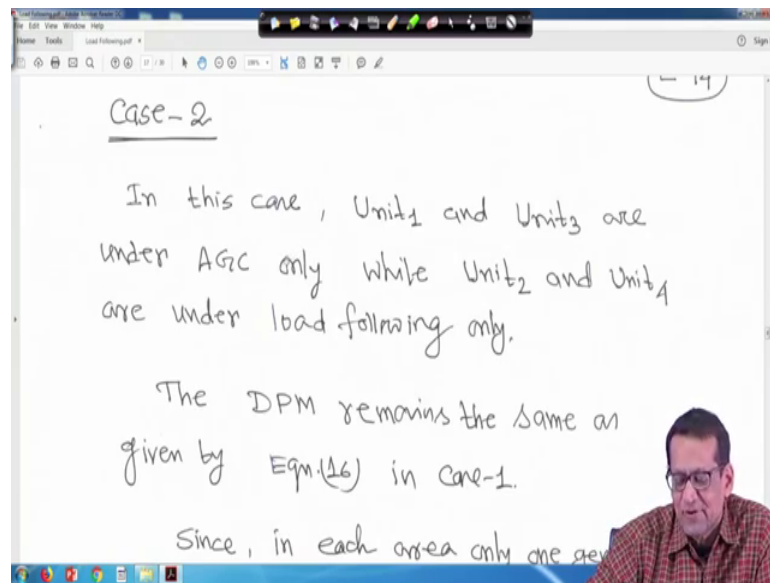 File Edit View Window Help
Home Tools Load Following.pdf
Sign
17
Case-2
In this case, Unit1 and Unit3 are
under AGC only while Unit2 and Unit4
are under load following only.
The DPM remains the same as
given by Eqn.(16) in Case-1.
Since, in each area only one